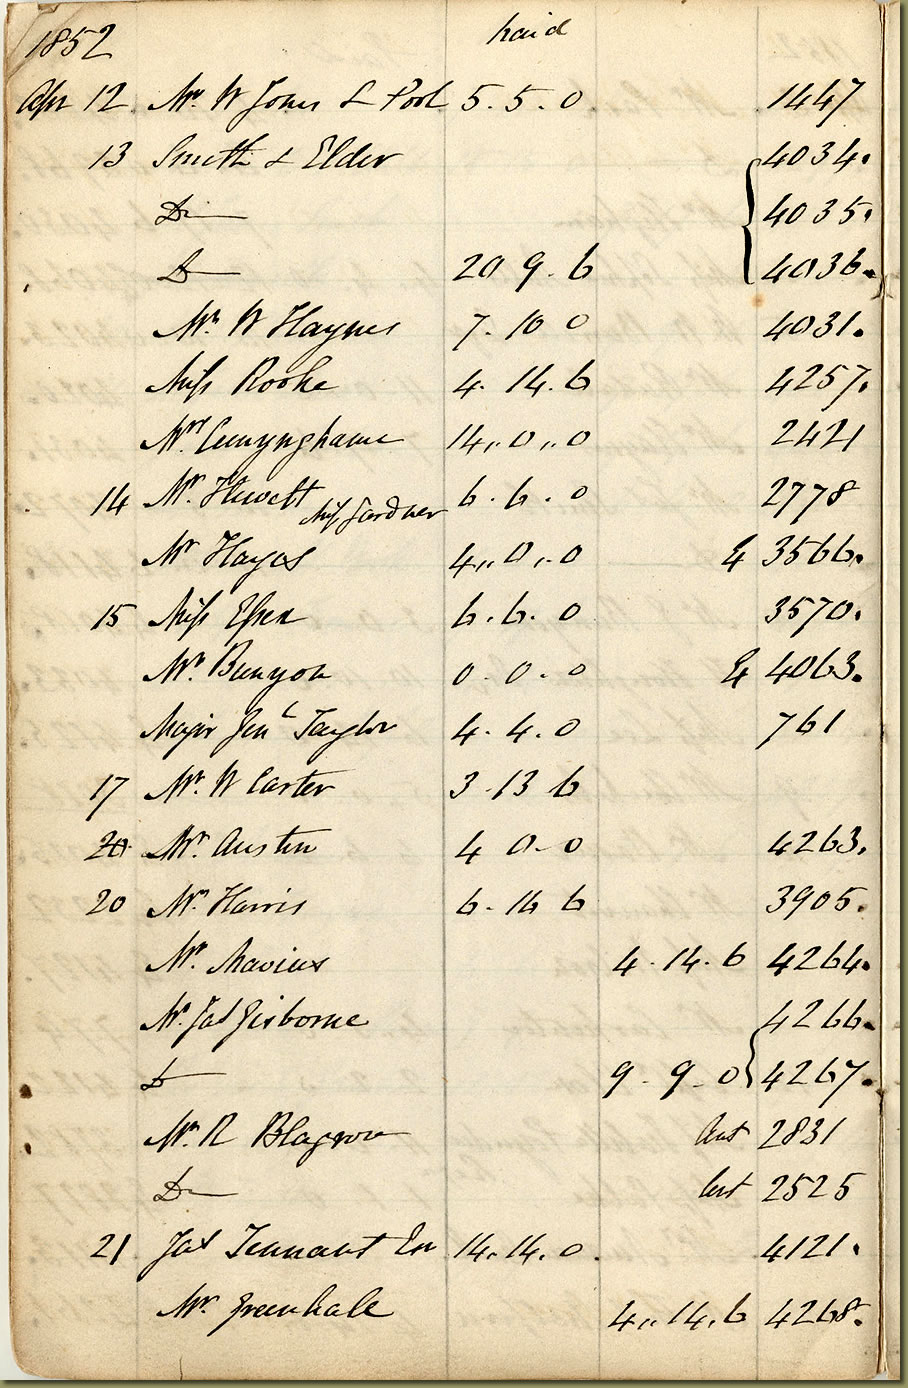 1852 paid
Apr 12 Mr W Jones L Pool 5. 5. 0 1447
13 Smith & Elder 4034.
Do 4035.
Do 20 9. 6 4036.
Mr W Haynes 7. 10 0 4031.
Miss Rooke 4. 14. 6 4257.
Mrs Cunynghame 14,, 0,, 0 2421
14 Mr. Hewett Miss Gardner 6. 6. 0 2778
Mr Hayes 4,, 0,, 0 & 3566.
15 Miss 6. 6. 0 3570.
Mr. Bunyon 0. 0. 0 & 4063.
Major Genl Taylor 4. 4. 0 761
17 Mr. W Carter 3 13 6
20 Mr. Austin 4 0 0 4263.
20 Mr Harris 6. 16 6 3905.
Mr. Mavius 4. 14. 6 4264.
Mr. Jas Gisborne 4266.
Do 9. 9. 0 4267.
Mr. R Blagrove 2831
Do 2525
21 Jas Tennant 14. 14. 0 4121.
Mr. Greenhale 4,, 14, 6 4268.